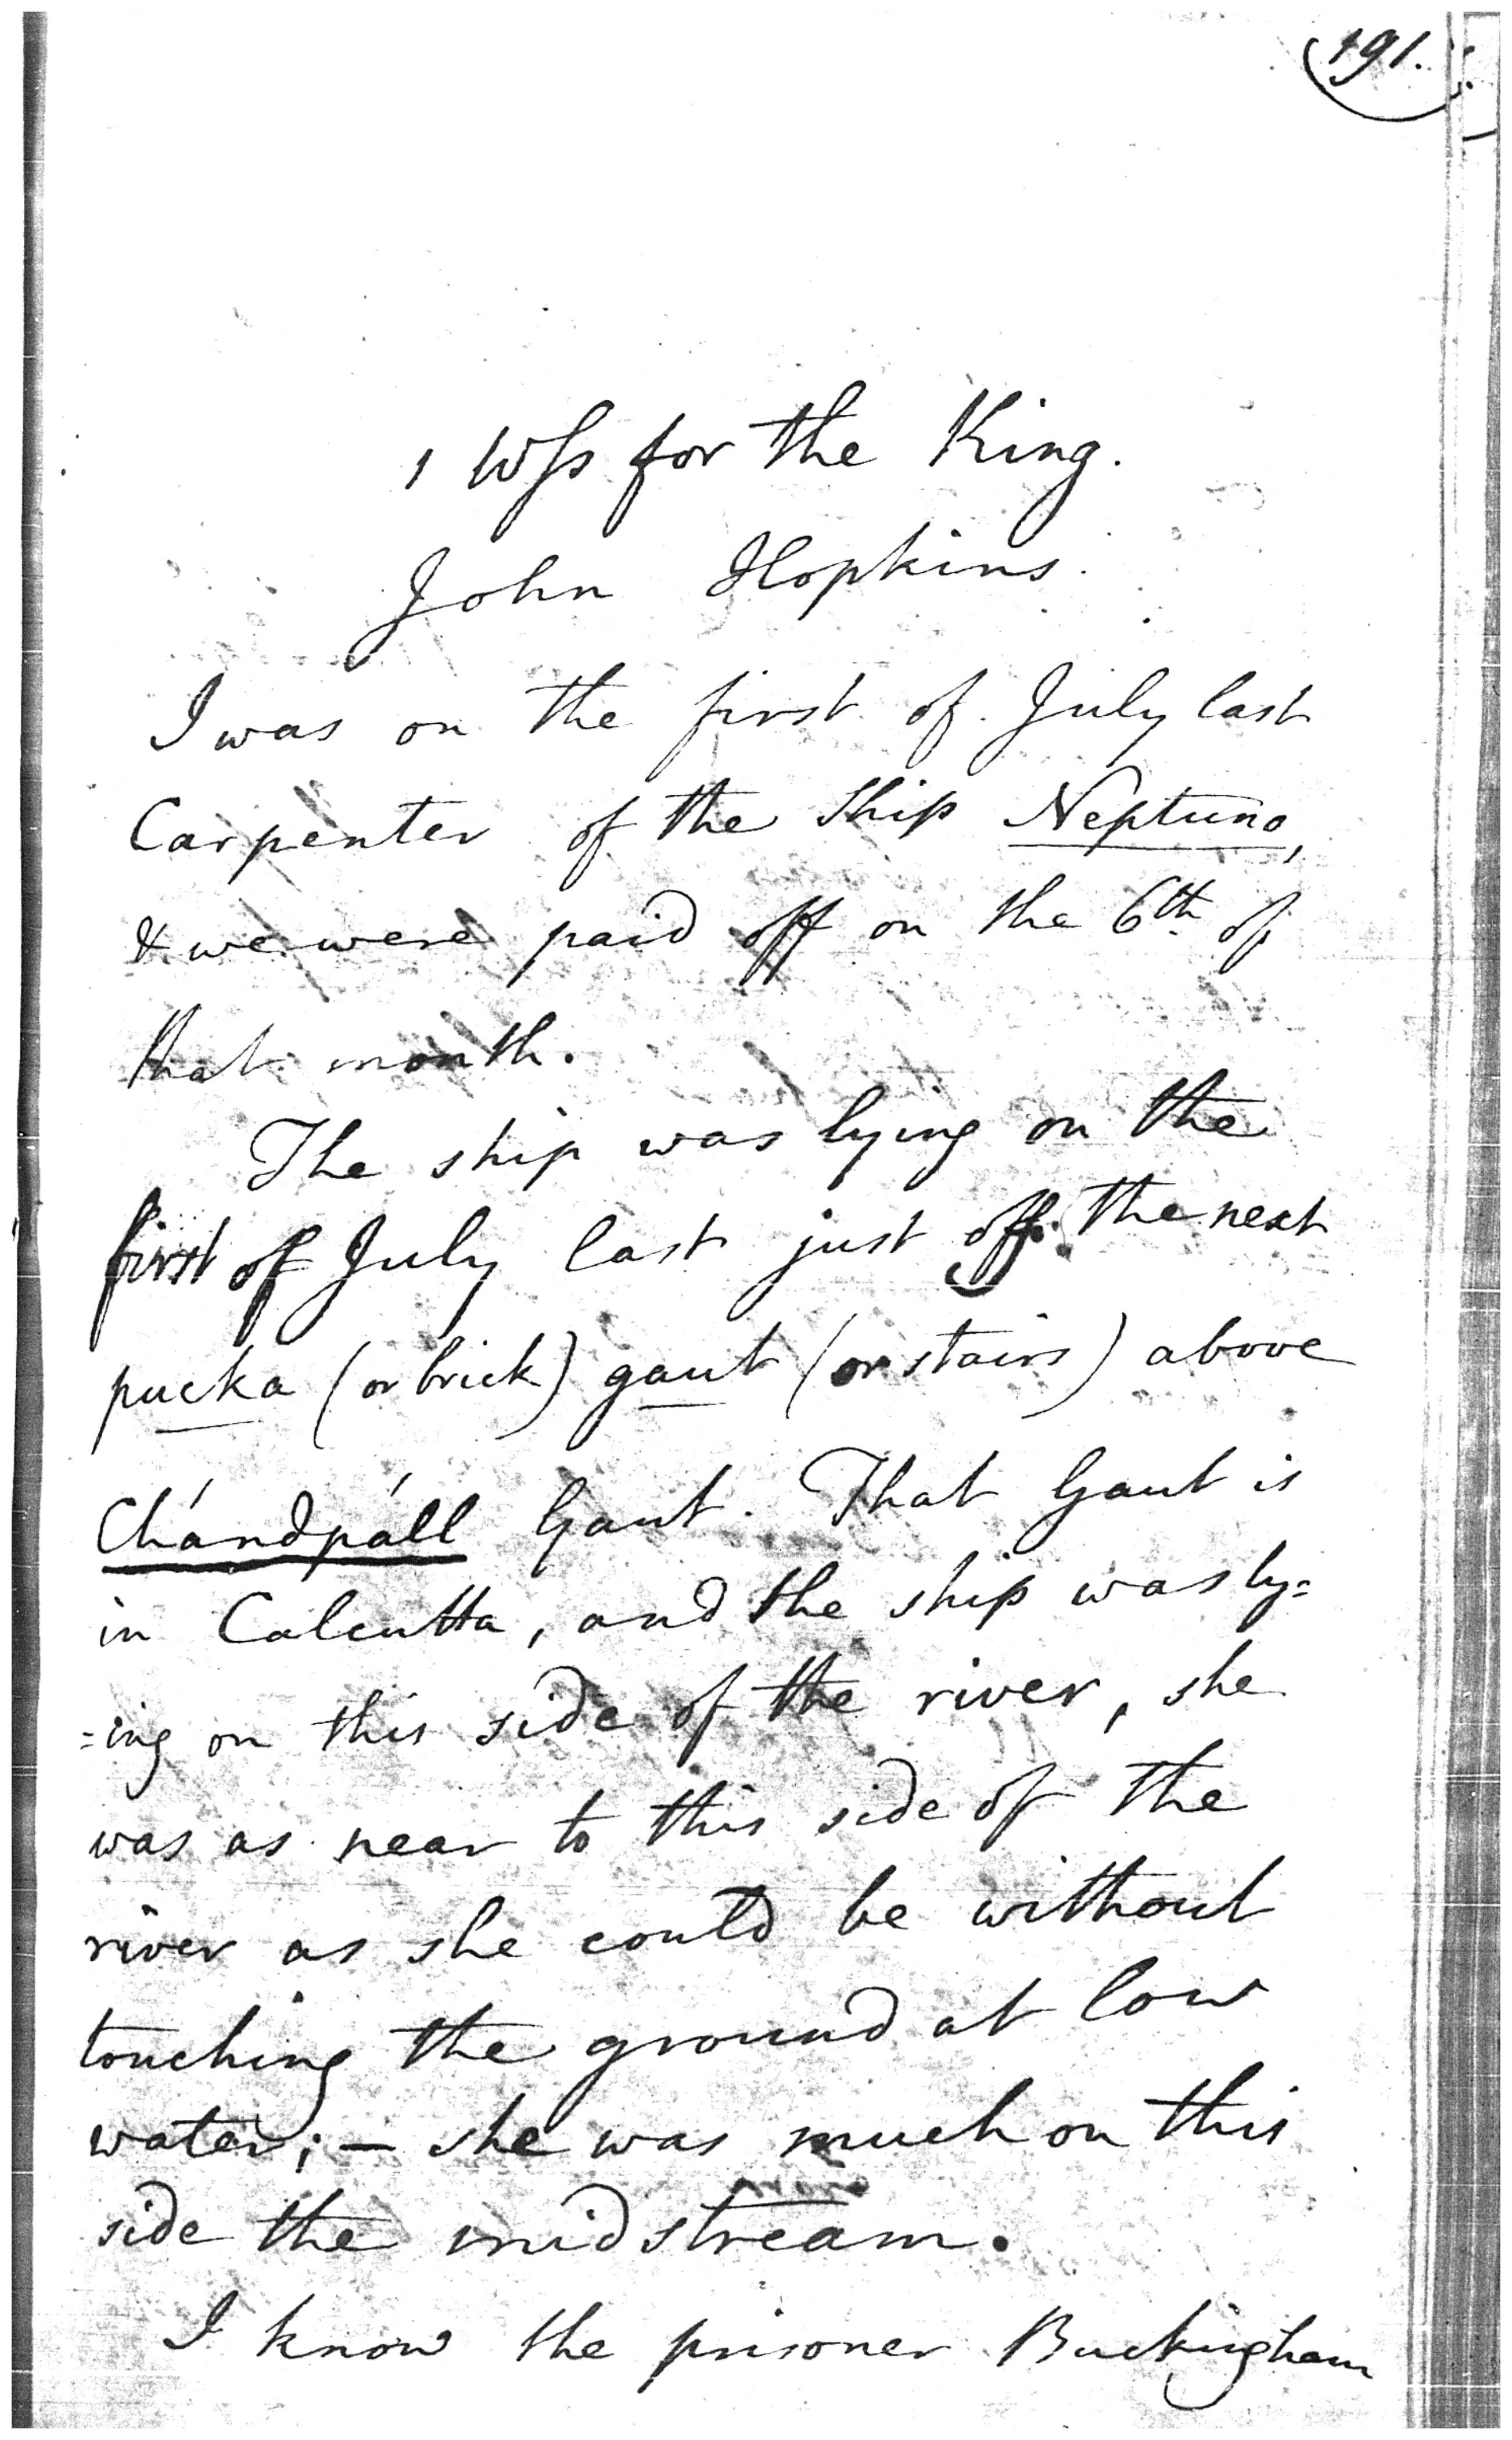 191.
1 Wſs for the King.
John Hopkins.
I was on the first of July last
Carpenter of the Ship Neptune,
& we were paid off on the 6th of
that month.
The ship was lying on the
first of July last just off the next
pucka (or brick) gaut (or stairs) above
Chándpáll Gaut. That Gaut is
in Calcutta, and the ship was ly=
=ing on this side of the river, she
was as near to this side of the
river as she could be without
touching the ground at low
water; — she was much on this
side the midstream.
I know the prisoner Buckingham